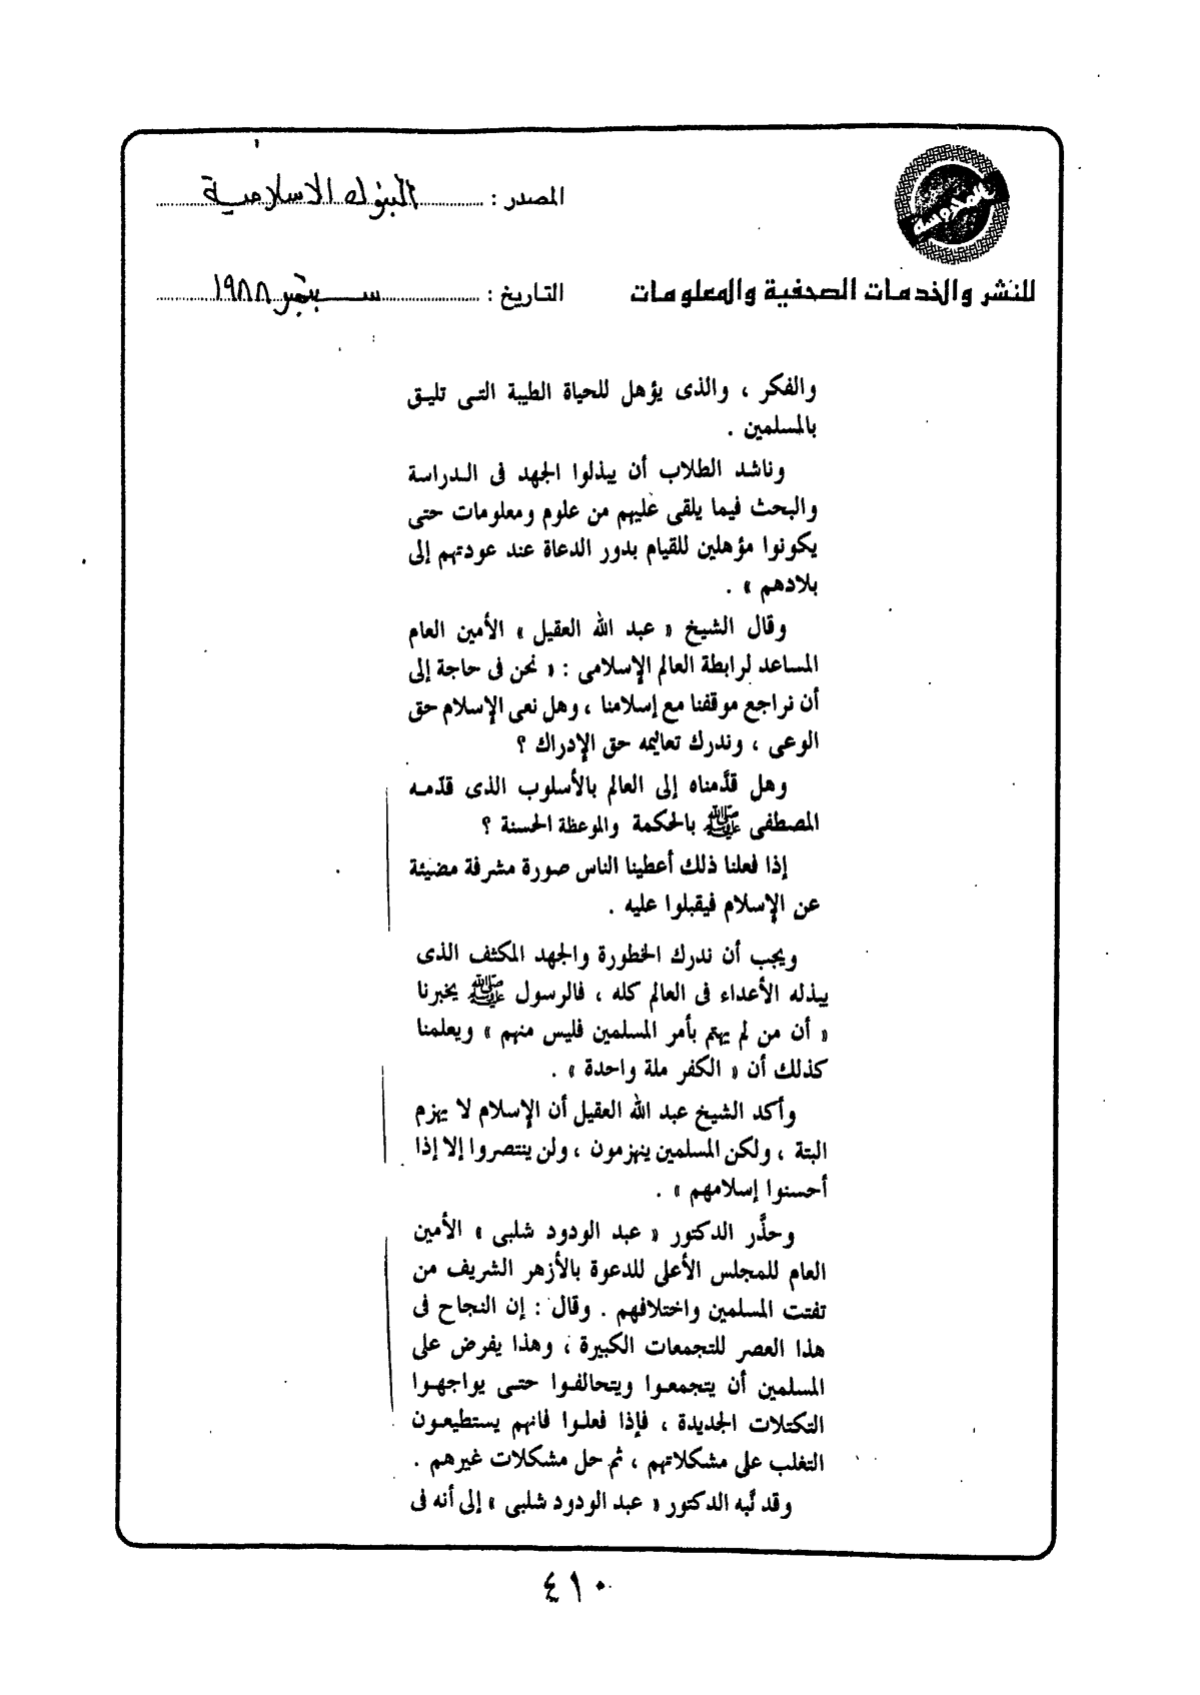 المصدر : البنوك الاسلامية
للنشر والخدمات الصحفية والمعلومات
التاريخ : سبتمبر ١٩٨٨
والفكر ، والذى يؤهل للحياة الطيبة التى تليق
بالمسلمين .
وناشد الطلاب أن يبذلوا الجهد فى الدراسة
والبحث فيما يلقى عليهم من علوم ومعلومات حتى
يكونوا مؤهلين للقيام بدور الدعاة عند عودتهم إلى
بلادهم » .
وقال الشيخ « عبد الله العقيل » الأمين العام
المساعد لرابطة العالم الإسلامى : « نحن فى حاجة إلى
أن نراجع موقفنا مع إسلامنا ، وهل نعى الإسلام حق
الوعى ، وندرك تعاليمه حق الإدراك ؟
وهل قدَّمناه إلى العالم بالأسلوب الذى قدّمه
المصطفى ﷺ بالحكمة والموعظة الحسنة ؟
إذا فعلنا ذلك أعطينا الناس صورة مشرفة مضيئة
عن الإسلام فيقبلوا عليه .
ويجب أن ندرك الخطورة والجهد المكثف الذى
يبذله الأعداء فى العالم كله ، فالرسول ﷺ يخبرنا
« أن من لم يهتم بأمر المسلمين فليس منهم » ويعلمنا
كذلك أن « الكفر ملة واحدة » .
وأكد الشيخ عبد الله العقيل أن الإسلام لا يهزم
البتة ، ولكن المسلمين ينهزمون ، ولن ينتصروا إلا إذا
أحسنوا إسلامهم » .
وحذَّر الدكتور « عبد الودود شلبى » الأمين
العام للمجلس الأعلى للدعوة بالأزهر الشريف من
تفتت المسلمين واختلافهم . وقال : إن النجاح فى
هذا العصر للتجمعات الكبيرة ، وهذا يفرض على
المسلمين أن يتجمعوا ويتحالفوا حتى يواجهوا
التكتلات الجديدة ، فإذا فعلوا فانهم يستطيعون
التغلب على مشكلاتهم ، ثم حل مشكلات غيرهم .
وقد نبَّه الدكتور « عبد الودود شلبى » إلى أنه فى
٤١٠